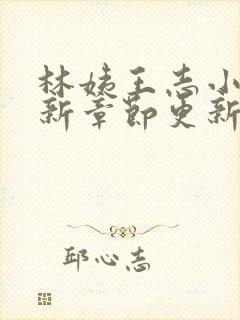 林姨王志小
新章节更新
邱心志